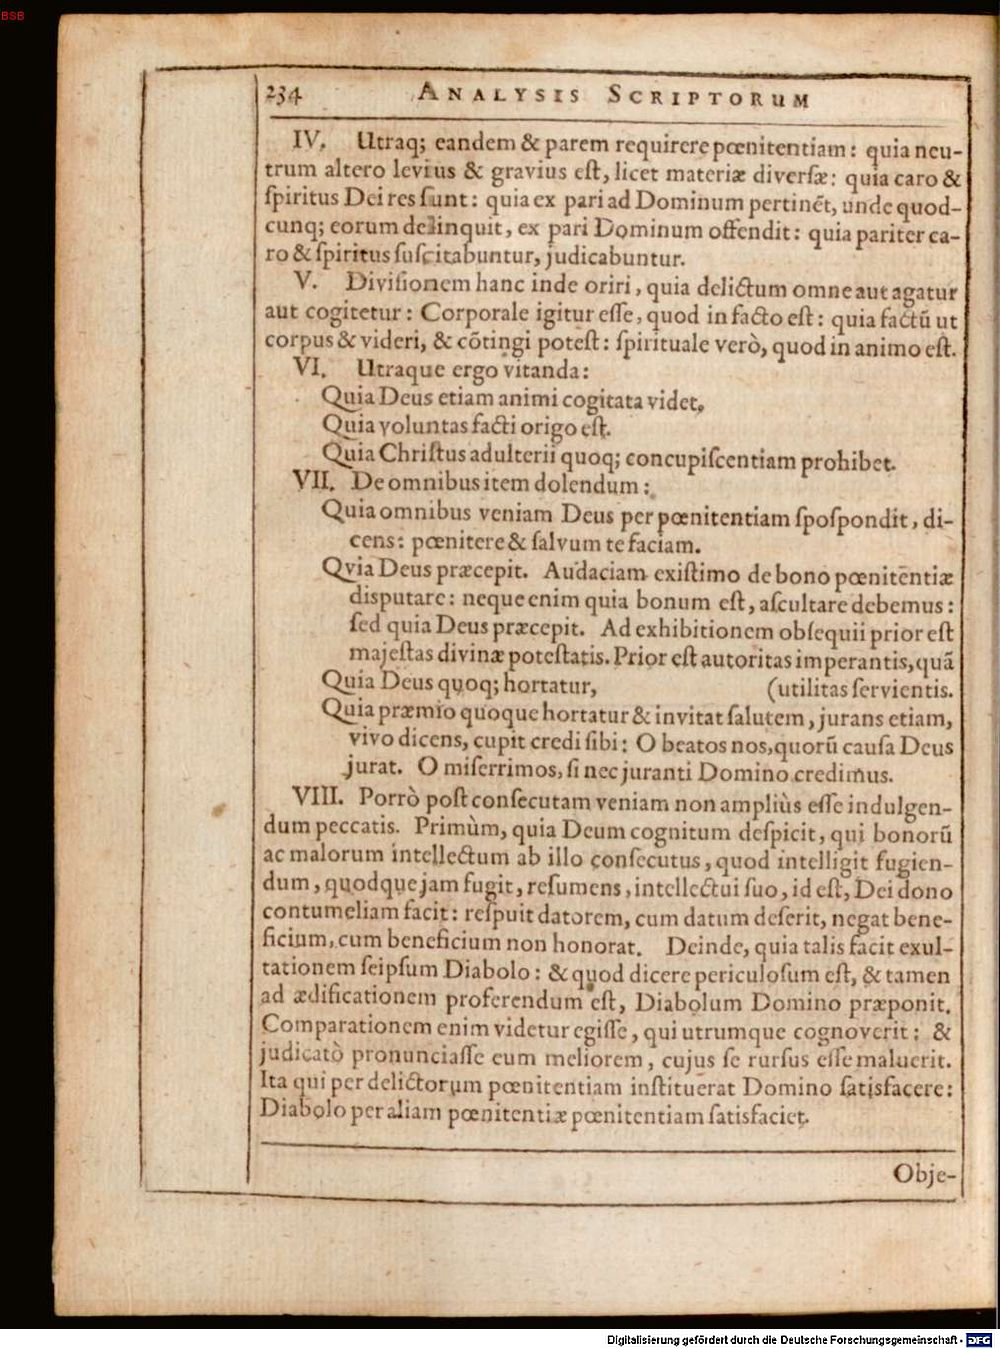 BSB
234 ANALYSIS SCRIPTORUM
IV. Utraq; eandem & parem requirere pœnitentiam: quia neu-
trum altero levius & gravius eſt, licet materiæ diverſæ: quia caro &
ſpiritus Dei res ſunt: quia ex pari ad Dominum pertinẽt, unde quod-
cunq; eorum delinquit, ex pari Dominum offendit: quia pariter ca-
ro & ſpiritus ſuſcitabuntur, judicabuntur.
V. Diviſionem hanc inde oriri, quia delictum omne aut agatur
aut cogitetur: Corporale igitur eſſe, quod in facto eſt: quia factũ ut
corpus & videri, & cõtingi poteſt: ſpirituale verò, quod in animo eſt.
VI. Utraque ergo vitanda:
Quia Deus etiam animi cogitata videt.
Quia voluntas facti origo eſt.
Quia Chriſtus adulterii quoq; concupiſcentiam prohibet.
VII. De omnibus item dolendum:
Quia omnibus veniam Deus per pœnitentiam ſpoſpondit, di-
cens: pœnitere & ſalvum te faciam.
Qvia Deus præcepit. Audaciam exiſtimo de bono pœnitentiæ
diſputare: neque enim quia bonum eſt, aſcultare debemus:
ſed quia Deus præcepit. Ad exhibitionem obſequii prior eſt
majeſtas divinæ poteſtatis. Prior eſt autoritas imperantis, quã
Quia Deus quoq; hortatur, (utilitas ſervientis.
Quia præmio quoque hortatur & invitat ſalutem, jurans etiam,
vivo dicens, cupit credi ſibi: O beatos nos, quorũ cauſa Deus
jurat. O miſerrimos, ſi nec juranti Domino credimus.
VIII. Porrò poſt conſecutam veniam non ampliùs eſſe indulgen-
dum peccatis. Primùm, quia Deum cognitum deſpicit, qui bonorũ
ac malorum intellectum ab illo conſecutus, quod intelligit fugien-
dum, quodque jam fugit, reſumens, intellectui ſuo, id eſt, Dei dono
contumeliam facit: reſpuit datorem, cum datum deſerit, negat bene-
ficium, cum beneficium non honorat. Deinde, quia talis facit exul-
tationem ſeipſum Diabolo: & quod dicere periculoſum eſt, & tamen
ad ædificationem proferendum eſt, Diabolum Domino præponit.
Comparationem enim videtur egiſſe, qui utrumque cognoverit: &
judicatò pronunciaſſe eum meliorem, cujus ſe rurſus eſſe maluerit.
Ita qui per delictorum pœnitentiam inſtituerat Domino ſatisfacere:
Diabolo per aliam pœnitentiæ pœnitentiam ſatisfaciet.
Obje-
Digitalisierung gefördert durch die Deutsche Forschungsgemeinschaft - DFG